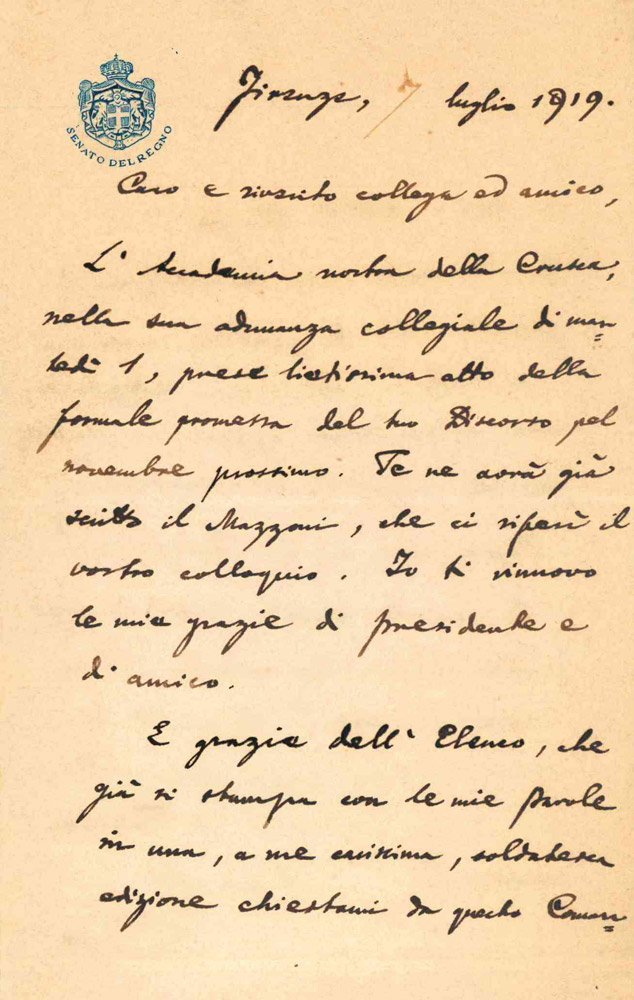 SENATO DEL REGNO
Firenze, 7 luglio 1919.
Caro e riverito collega ed amico,
L'Accademia nostra della Crusca,
nella sua adunanza collegiale di mar=
tedì 1, prese lietissima atto della
formale promessa del tuo Discorso pel
novembre prossimo. Te ne avrà già
scritto il Mazzoni, che ci riferì il
vostro colloquio. Io ti rinnovo
le mie grazie di presidente e
di amico.
E grazie dell'Elenco, che
già si stampa con le mie parole
in una, a me carissima, soldatesca
edizione chiestami da questo Coman=